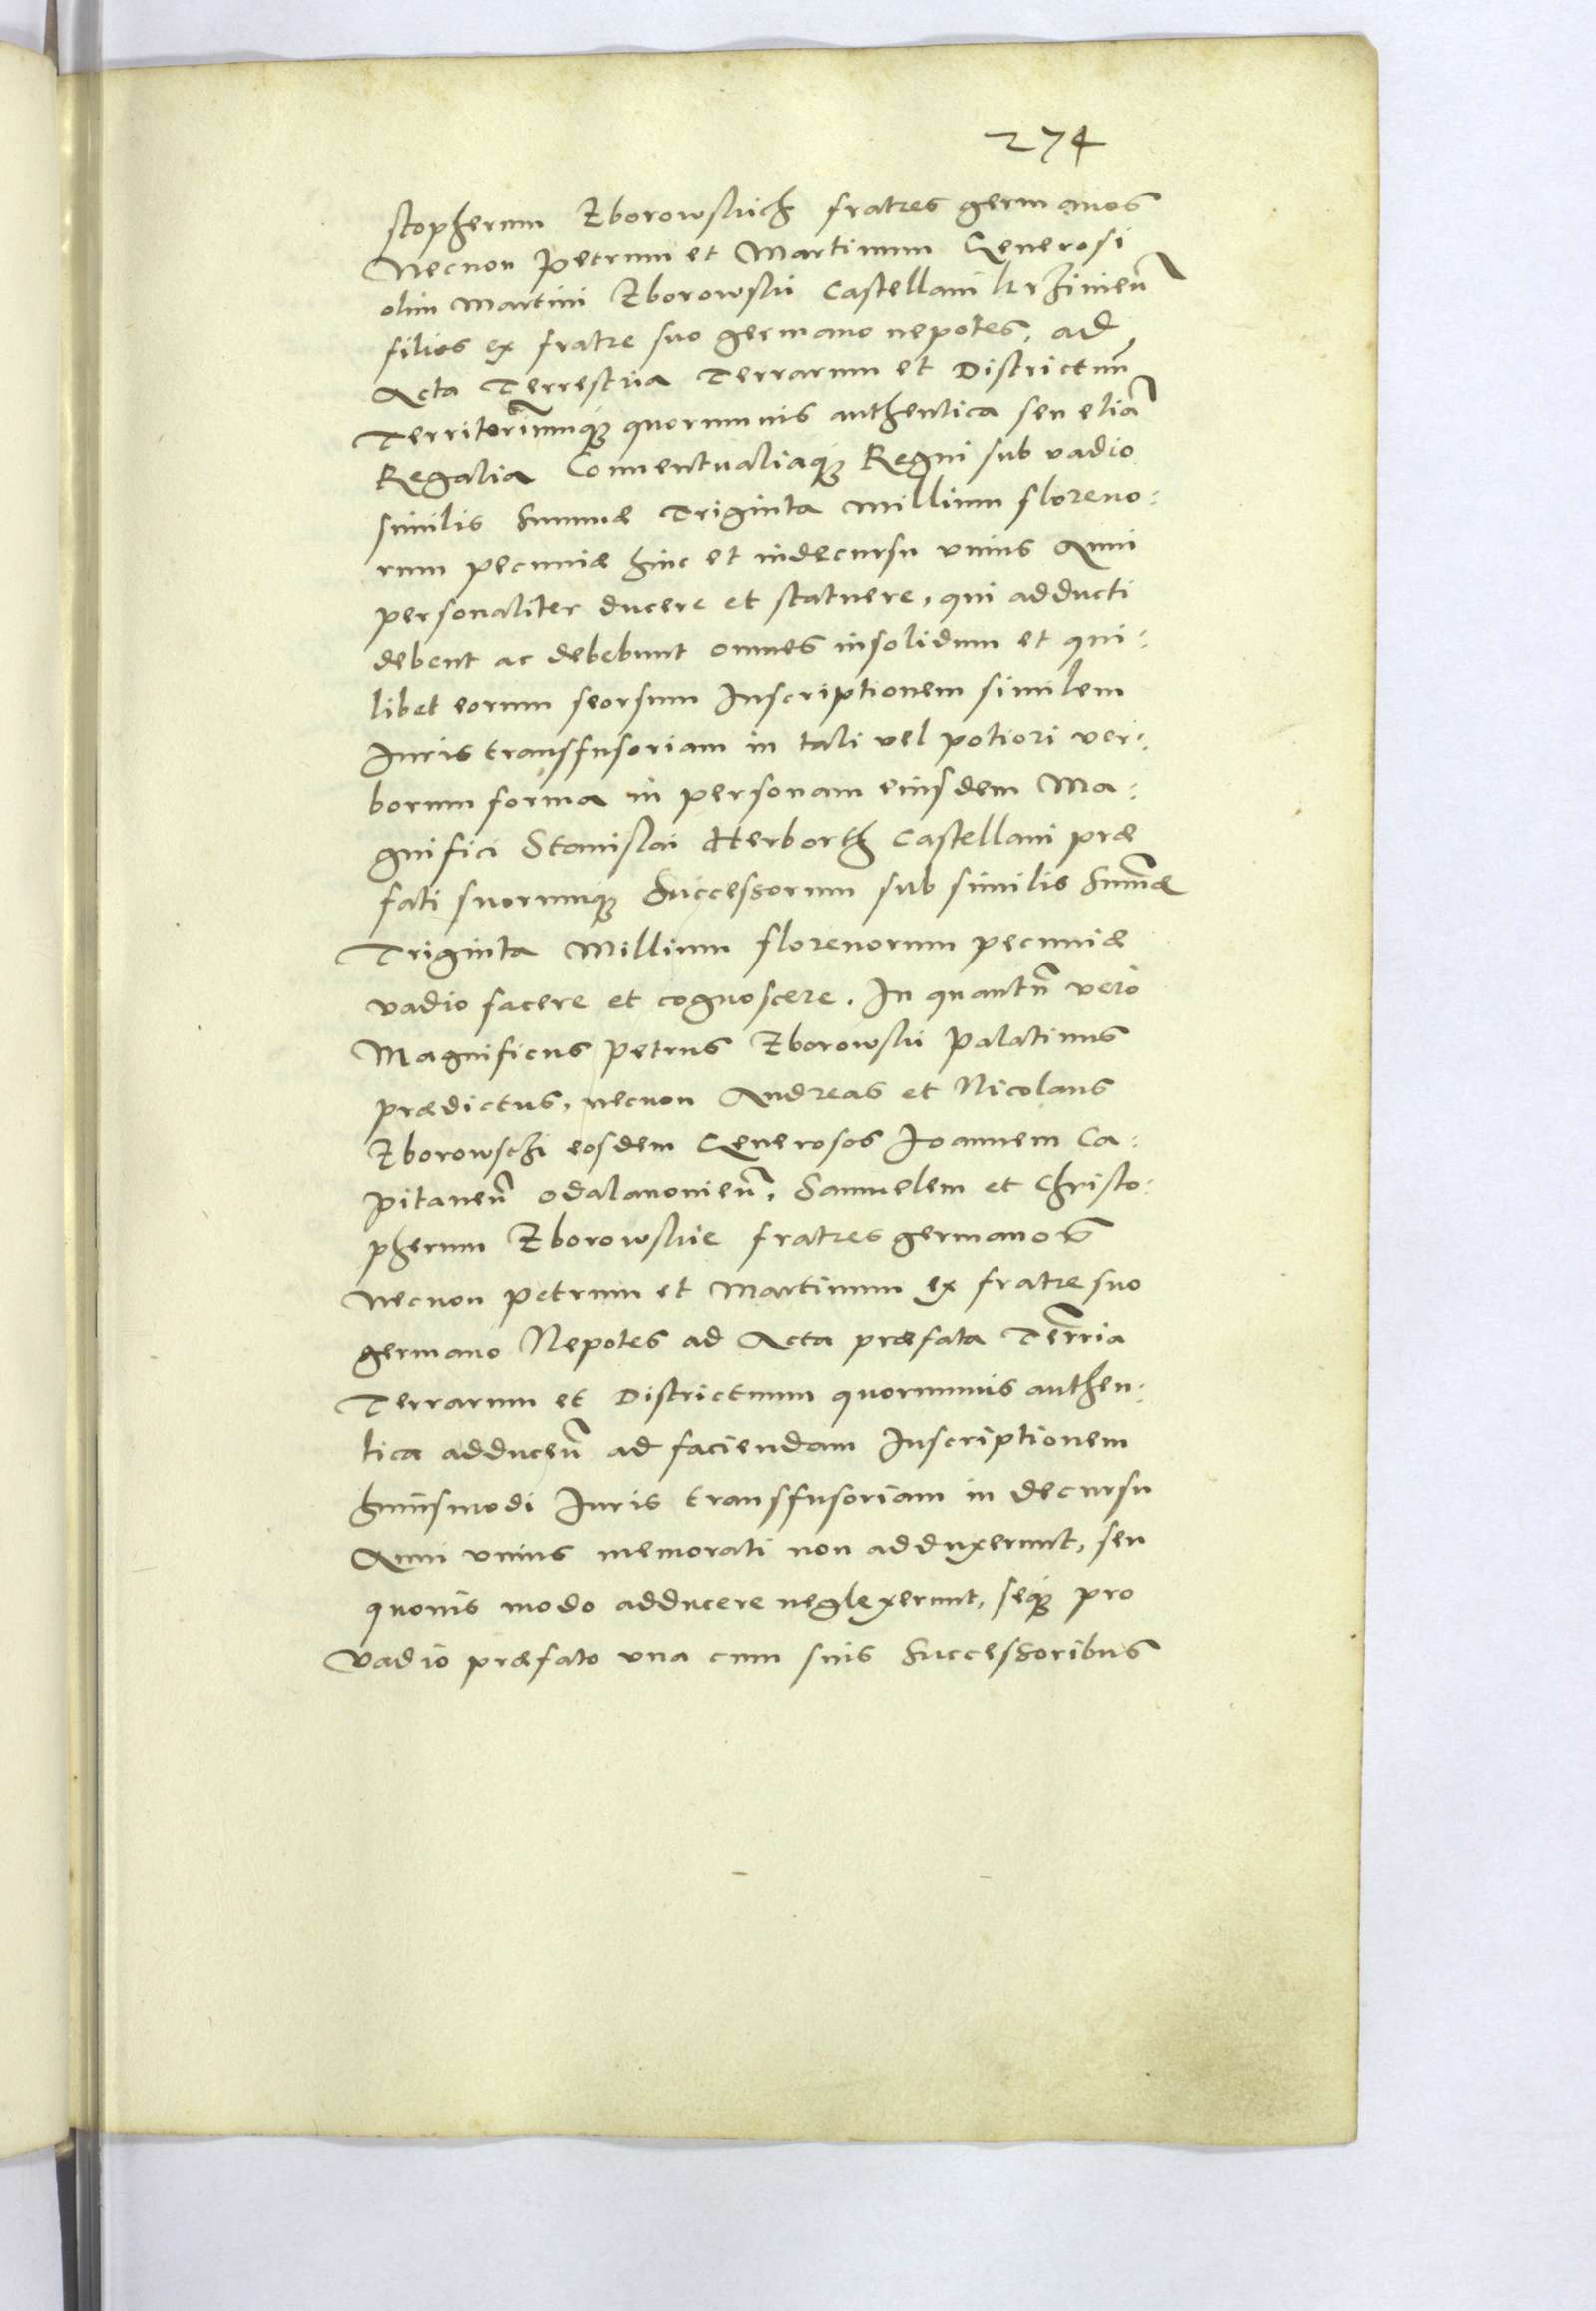 274
stopherum Zborowskich fratres germanos
Necnon Petrum et Martinum Generosi
olim Martini Zborowski Castellani krzivien̄
filios ex fratre suo germano nepotes, ad
Acta Terrestria Terrarum et Districtuū
Territoriūmque quorumuis authentica seu etiā
Regalia Conuentualiaque Regni sub vadio
similis summæ Triginta Millium floreno:
rum pecuniæ hinc et indecursu vnius Anni
personaliter ducere et statuere, qui adducti
debent ac debebunt omnes insolidum et qui:
libet eorum seorsum Inscriptionem similem
Iuris transfusoriam in tali vel potiori ver:
borum forma in personam eiusdem Ma:
gnifici Stanislai Herborth Castellani præ
fati suorumque Successorum sub similis sum̄æ
Triginta Millium florenorum pecuniæ
vadio facere et cognoscere. In quantū vero
Magnificus Petrus Zborowski Palatinus
prædictus, necnon Andreas et Nicolaus
Zborowsczi eosdem Generosos Ioannem Ca:
pitaneū odalanouien̄. Samuelem et Christo:
pherum Zborowskie fratres germanos
necnon Petrum et Martinum ex fratre suo
germano Nepotes ad Acta præfata Terr̄ia
Terrarum et Districtuum quorumuis authen:
tica adducen̄ ad faciendam Inscriptionem
huiusmodi Iuris transfusoriam in decursu
Anni vnius memorati non adduxerunt, seu
quouis modo adducere neglexerunt, seque pro
vadio præfato vna cum suis successoribus